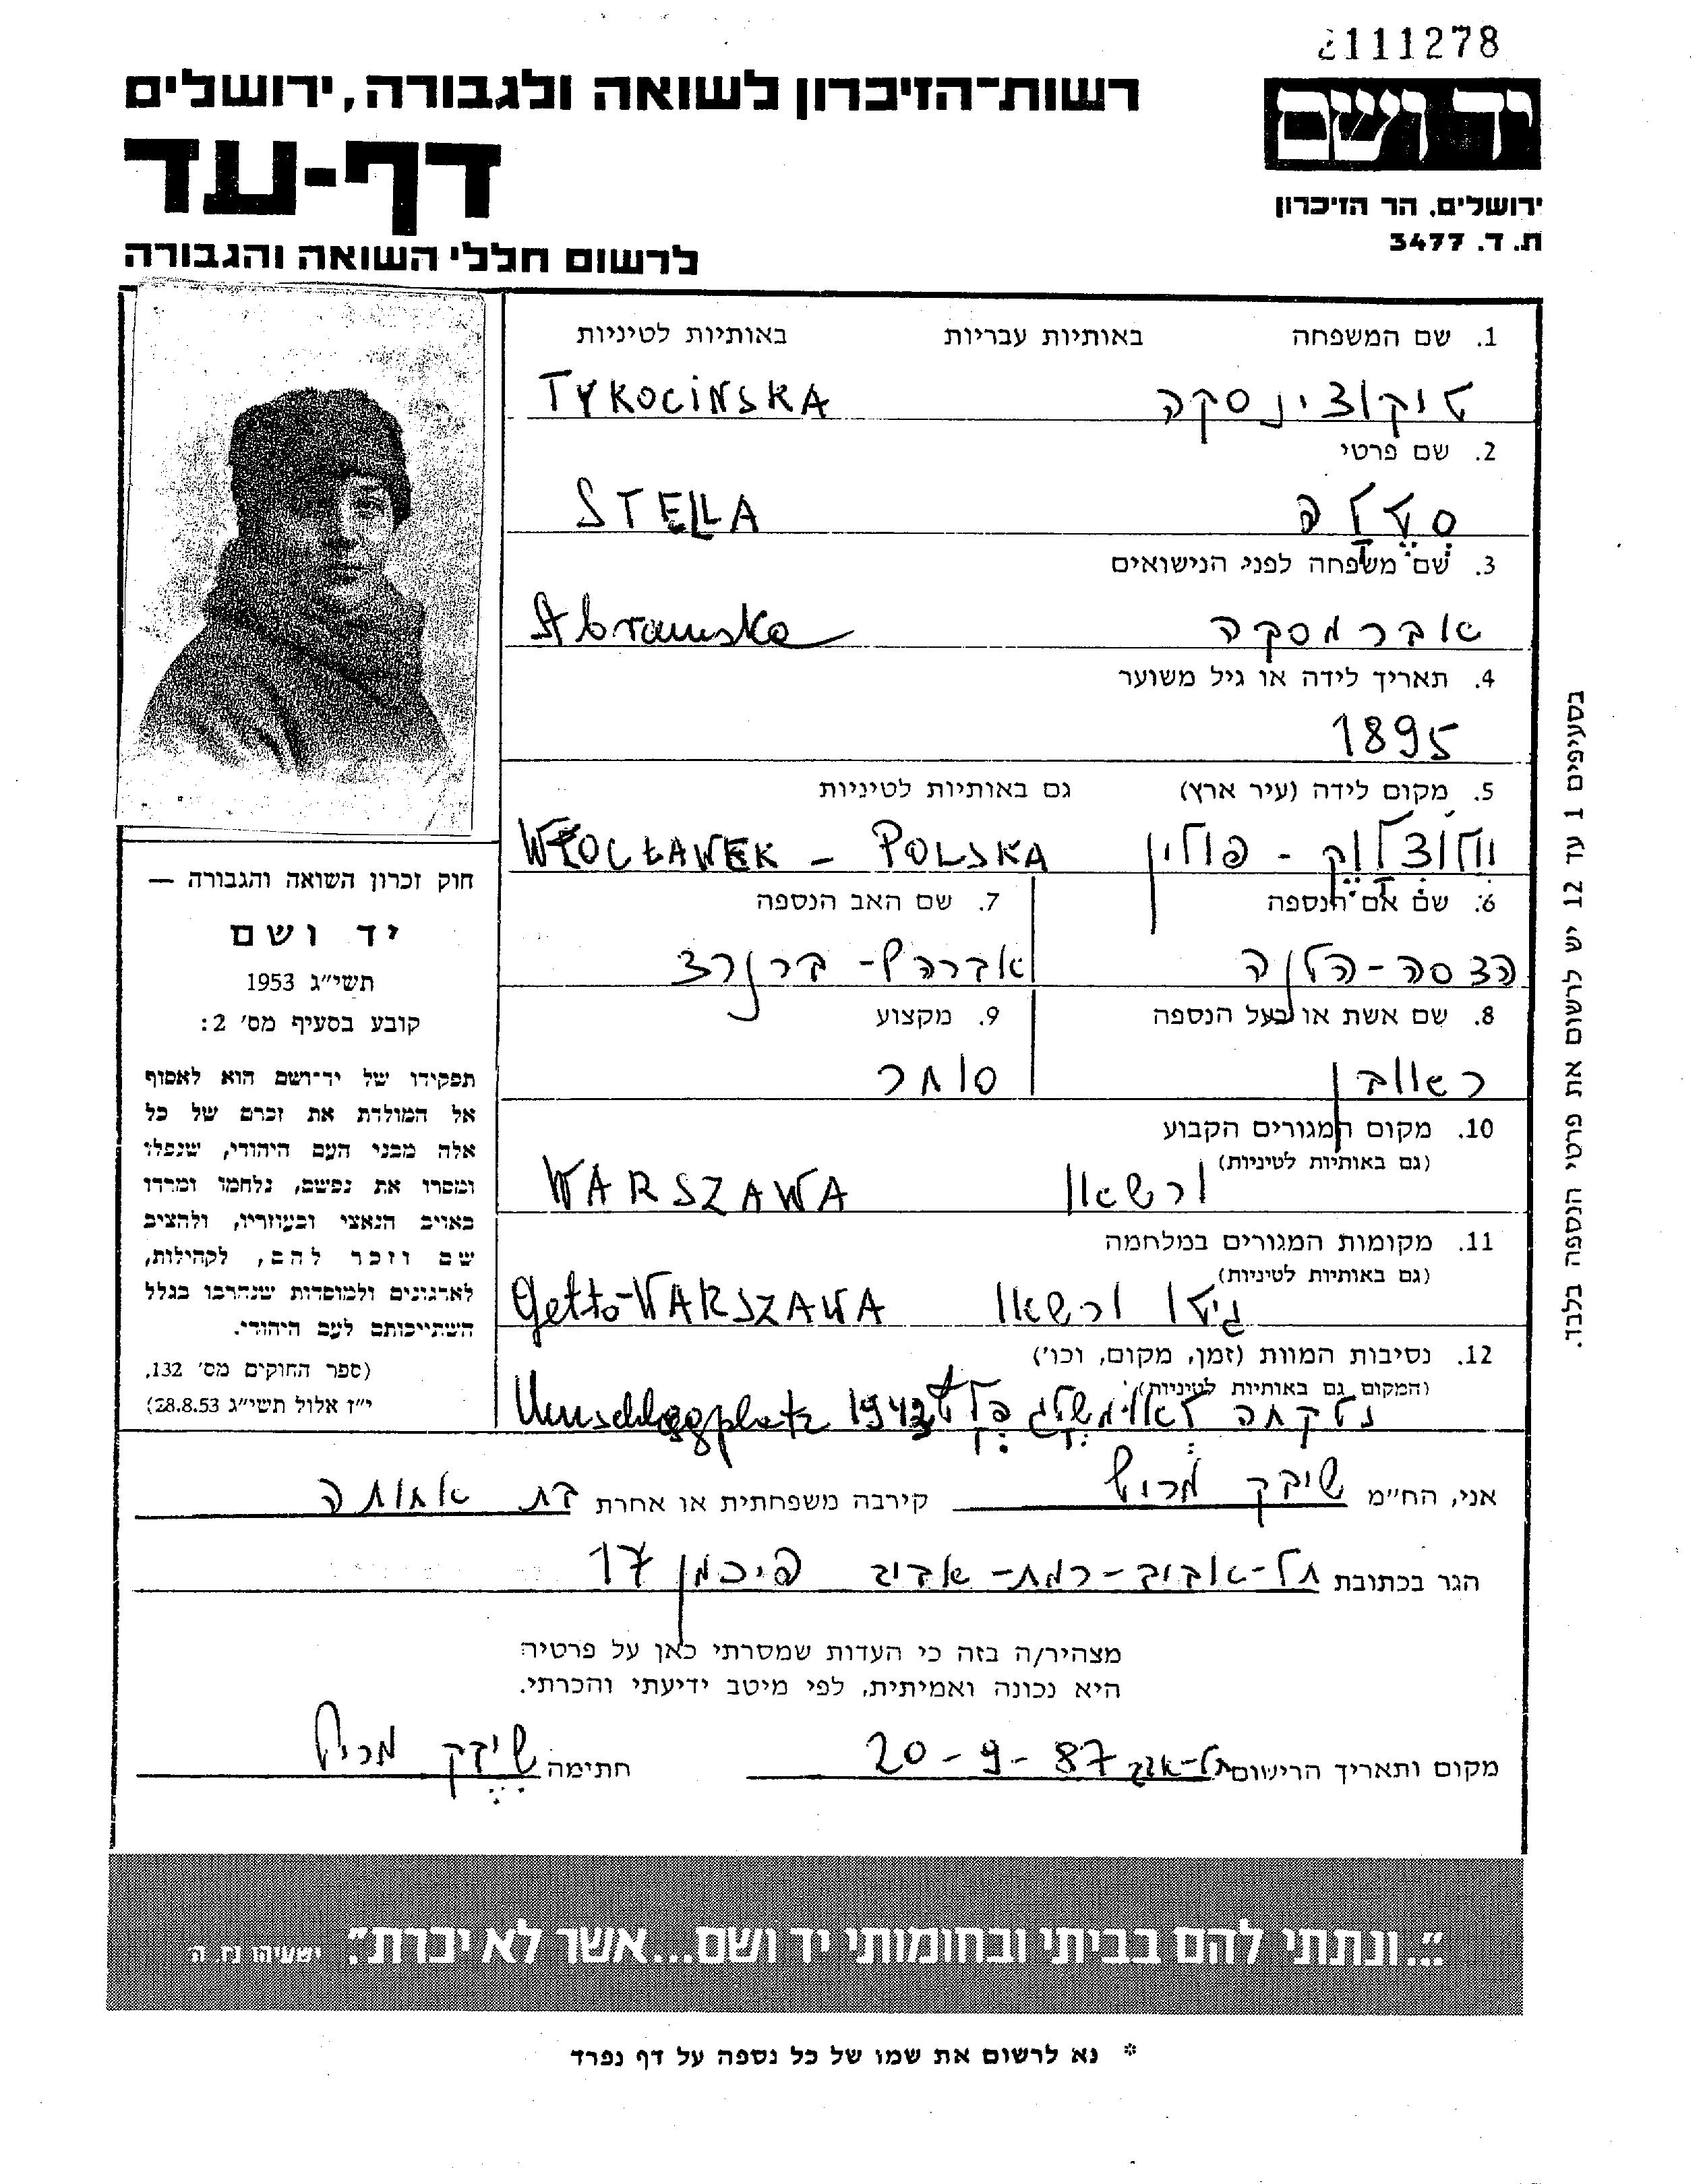 2111278
רשות־הזיכרון לשואה ולגבורה, ירושלים
יד ושם
דף-עד
ירושלים, הר הזיכרון
ת. ד. 3477
לרשום חללי השואה והגבורה
1. שם המשפחה באותיות עבריות באותיות לטיניות
טיקוצינסקה TYKOCINSKA
2. שם פרטי
סטלה STELLA
3. שם משפחה לפני הנישואים
אברמסקה Abramska
4. תאריך לידה או גיל משוער
1895
5. מקום לידה (עיר ארץ) גם באותיות לטיניות
ולוצלווק - פולין WŁOCŁAWEK - POLSKA
6. שם אם הנספה 7. שם האב הנספה
הצסה-הלנה אברהם-ברנרד
8. שם אשת או בעל הנספה 9. מקצוע
ראובן סוחר
10. מקום המגורים הקבוע
(גם באותיות לטיניות)
ורשאו WARSZAWA
11. מקומות המגורים במלחמה
(גם באותיות לטיניות)
גיטו ורשאו Getto-WARSZAWA
12. נסיבות המוות (זמן, מקום, וכו')
(המקום גם באותיות לטיניות)
נלקחה לאומשלגפלץ Umschlagplatz 1942
בסעיפים 1 עד 12 יש לרשום את פרטי הנספה בלבד.
חוק זכרון השואה והגבורה —
יד ושם
תשי״ג 1953
קובע בסעיף מס' 2:
תפקידו של יד־ושם הוא לאסוף
אל המולדת את זכרם של כל
אלה מבני העם היהודי, שנפלו
ומסרו את נפשם, נלחמו ומרדו
באויב הנאצי ובעוזריו, ולהציב
שם וזכר להם, לקהילות,
לארגונים ולמוסדות שנחרבו בגלל
השתייכותם לעם היהודי.
(ספר החוקים מס' 132,
י״ז אלול תשי״ג 28.8.53)
אני, הח״מ שיבק מריל קירבה משפחתית או אחרת בת אחותה
הגר בכתובת תל-אביב-רמת-אביב פיכמן 17
מצהיר/ה בזה כי העדות שמסרתי כאן על פרטיה
היא נכונה ואמיתית, לפי מיטב ידיעתי והכרתי.
מקום ותאריך הרישום תל-אביב 20-9-87 חתימה שיבק מריל
״...ונתתי להם בביתי ובחומותי יד ושם...אשר לא יכרת״. ישעיהו נו, ה
* נא לרשום את שמו של כל נספה על דף נפרד